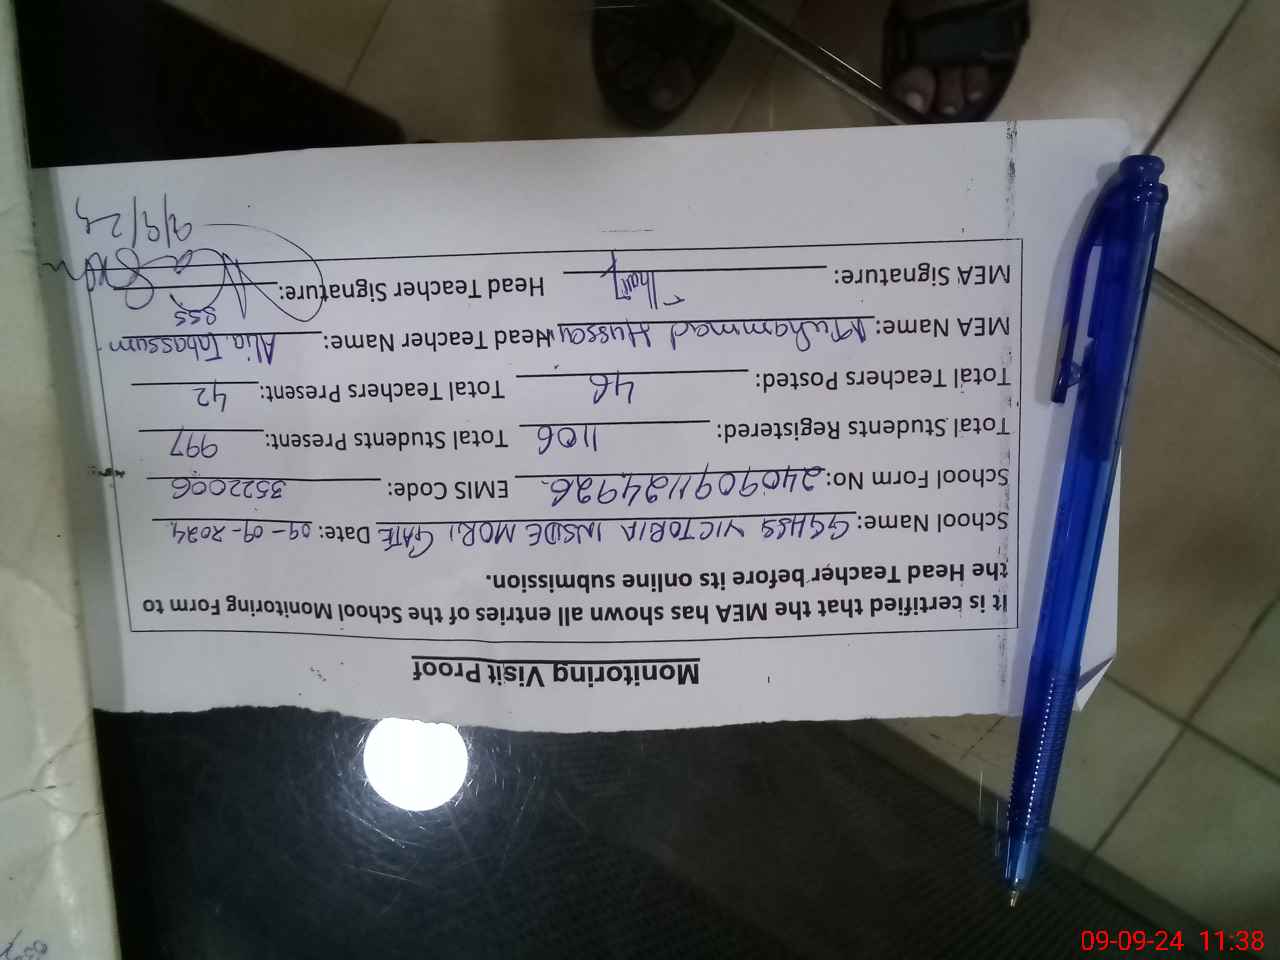 Monitoring Visit Proof
It is certified that the MEA has shown all entries of the School Monitoring Form to
the Head Teacher before its online submission.
School Name: GGHSS VICTORIA INSIDE MORI GATE Date: 09-09-2024
School Form No: 2409091124926 EMIS Code: 3522006
Total Students Registered: 1106 Total Students Present: 997
Total Teachers Posted: 46 Total Teachers Present: 42
MEA Name: Muhammad Hussain Head Teacher Name: Alia Tabassum
SSS
MEA Signature: Head Teacher Signature:
9/9/24
09-09-24 11:38